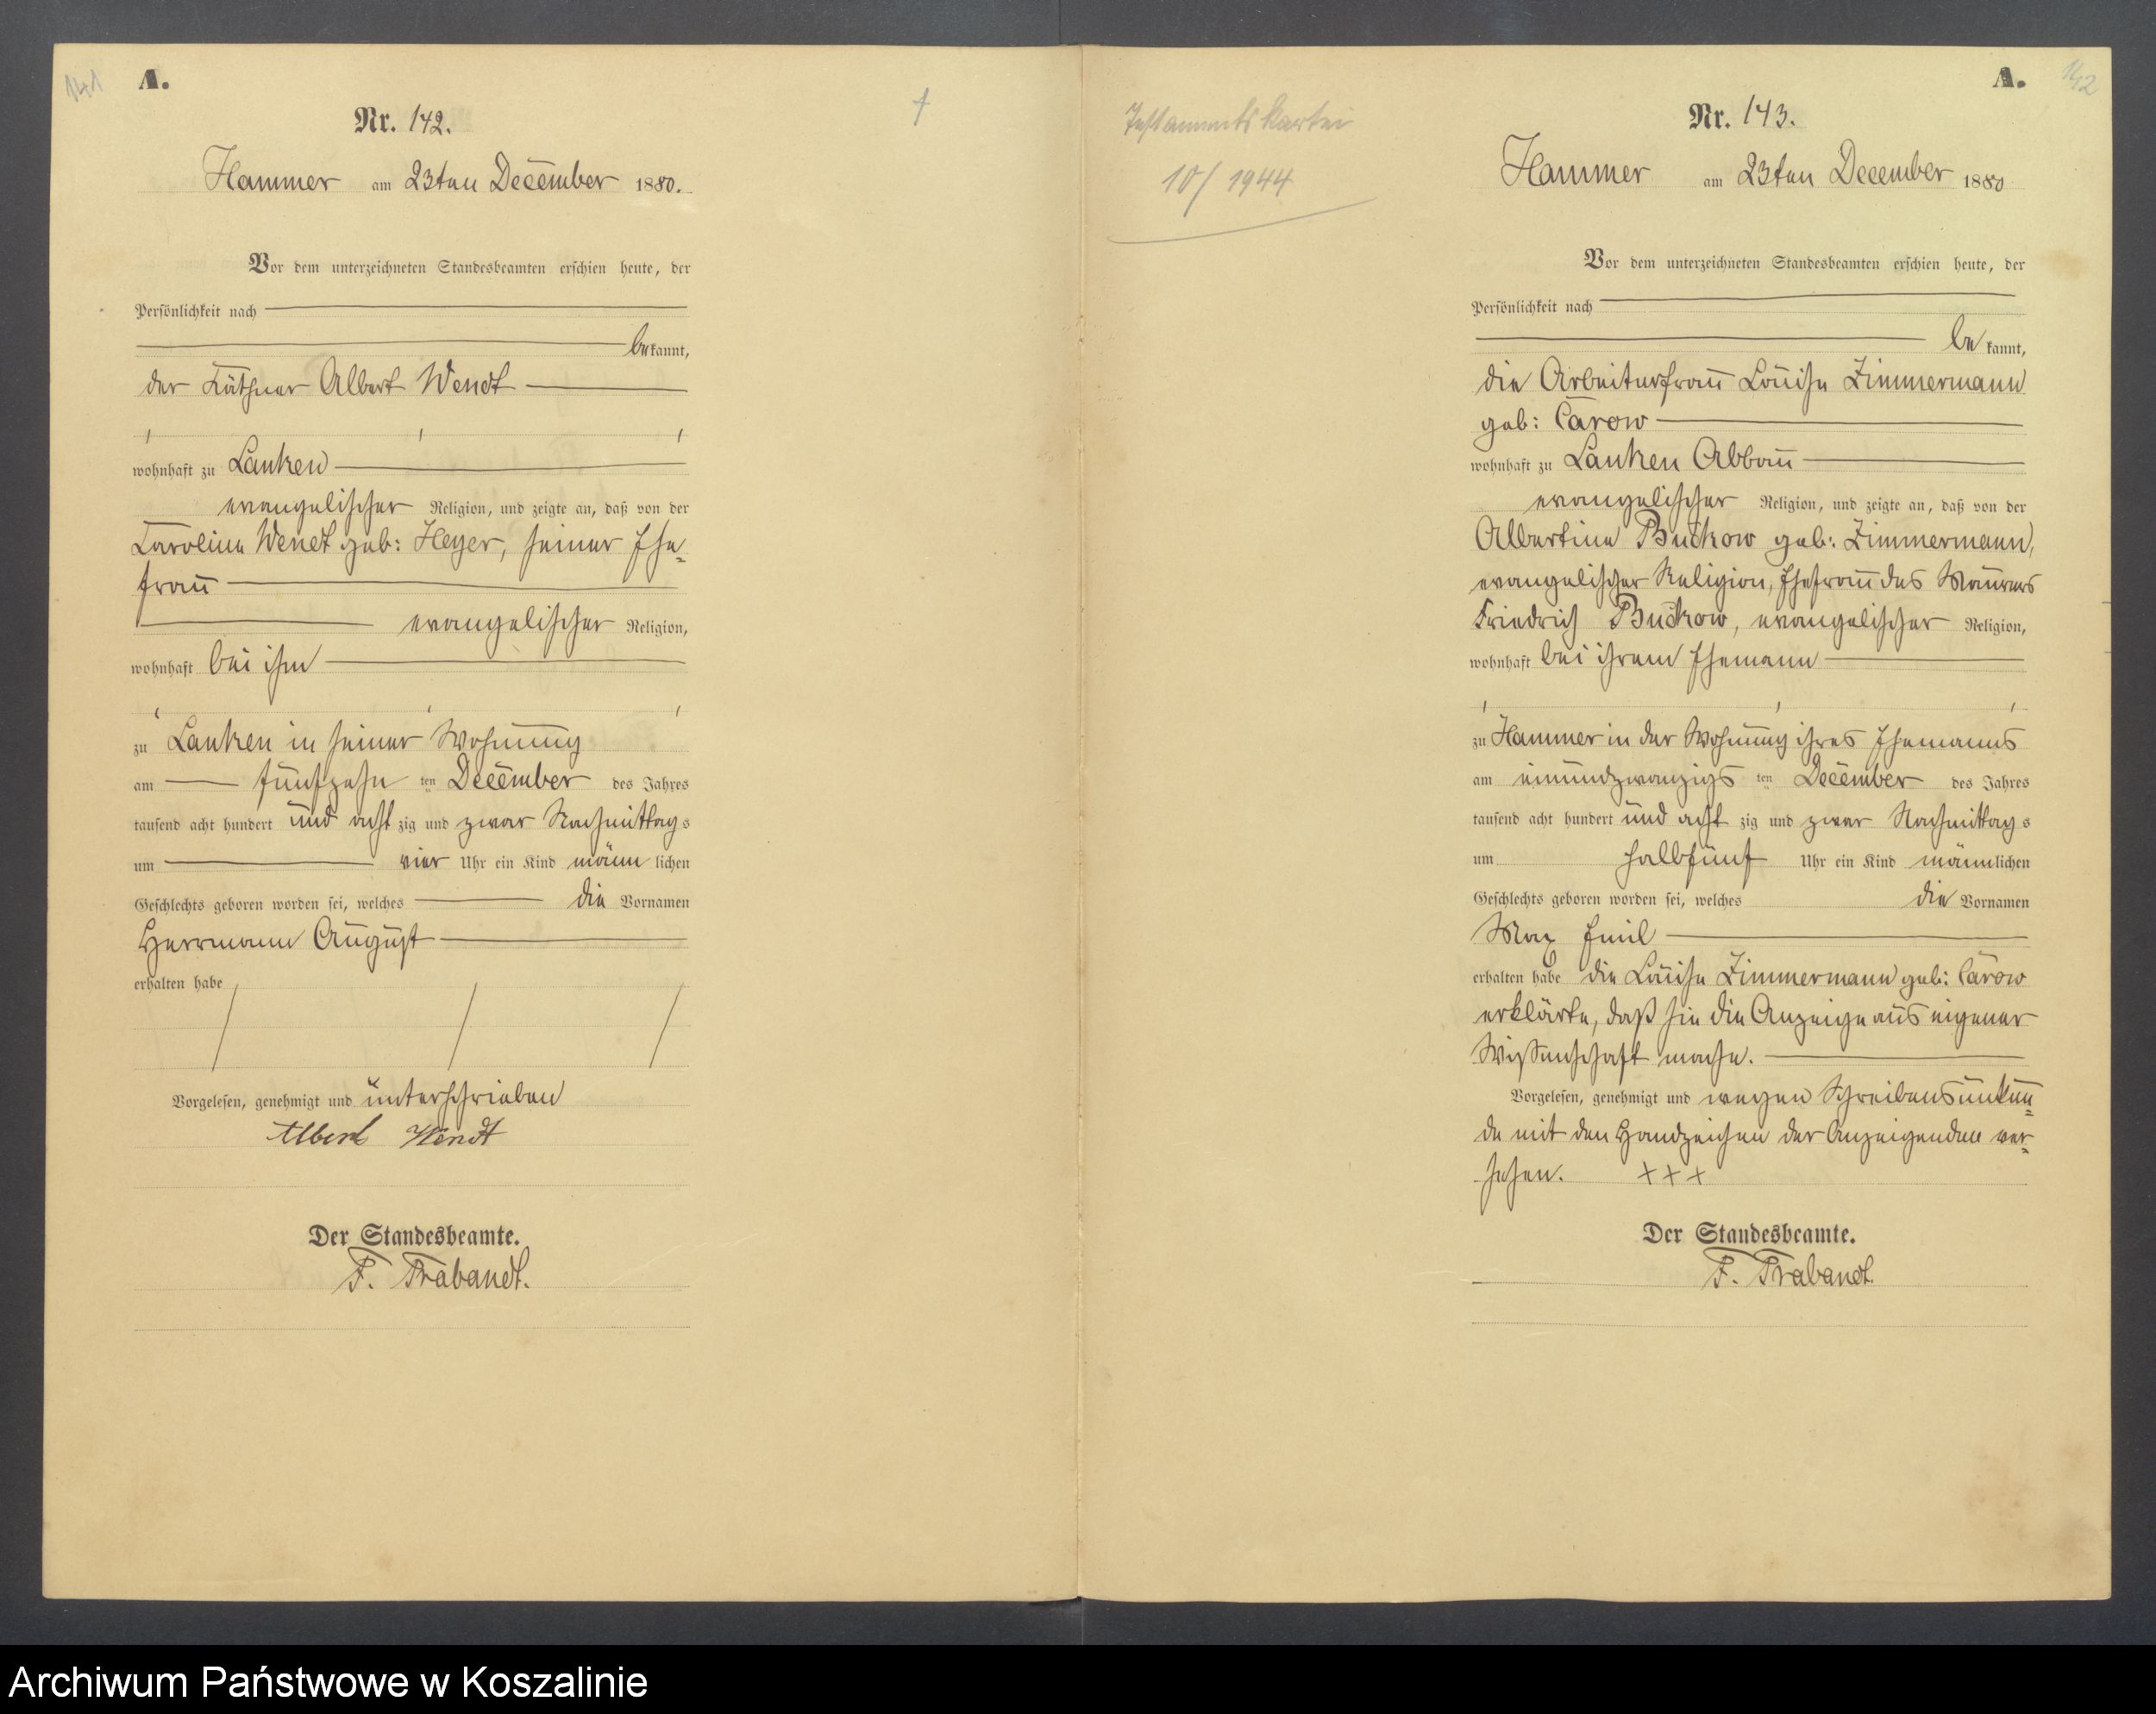 141
A.
Nr. 142.
Hammer am 23ten December 1880.
Vor dem unterzeichneten Standesbeamten erschien heute, der
Persönlichkeit nach
bekannt,
der Käthner Albert Wendt
wohnhaft zu Lanken
evangelischer Religion, und zeigte an, daß von der
Caroline Wendt geb: Heyer, seiner Ehe-
frau
evangelischer Religion,
wohnhaft bei ihm
zu Lanken in seiner Wohnung
am fünfzehn ten December des Jahres
tausend acht hundert und acht zig und zwar Nachmittags
um vier Uhr ein Kind männlichen
Geschlechts geboren worden sei, welches die Vornamen
Herrmann August
erhalten habe
Vorgelesen, genehmigt und unterschrieben
Albert Wendt
Der Standesbeamte.
F. Trabandt.
Testamentskartei
10/1944
A.
142
Nr. 143.
Hammer am 23ten December 1880
Vor dem unterzeichneten Standesbeamten erschien heute, der
Persönlichkeit nach
bekannt,
die Arbeiterfrau Louise Zimmermann
geb: Carow
wohnhaft zu Lanken Abbau
evangelischer Religion, und zeigte an, daß von der
Albertine Buckow geb: Zimmermann,
evangelischer Religion, Ehefrau des Maurers
Friedrich Buckow, evangelischer Religion,
wohnhaft bei ihrem Ehemann
zu Hammer in der Wohnung ihres Ehemanns
am einundzwanzigs ten December des Jahres
tausend acht hundert und acht zig und zwar Nachmittags
um halbfünf Uhr ein Kind männlichen
Geschlechts geboren worden sei, welches die Vornamen
Max Emil
erhalten habe die Louise Zimmermann geb: Carow
erklärte, daß sie die Anzeige aus eigener
Wissenschaft mache.
Vorgelesen, genehmigt und wegen Schreibensunkun-
de mit den Handzeichen der Anzeigenden ver-
sehen. +++
Der Standesbeamte.
F. Trabandt.
Archiwum Państwowe w Koszalinie